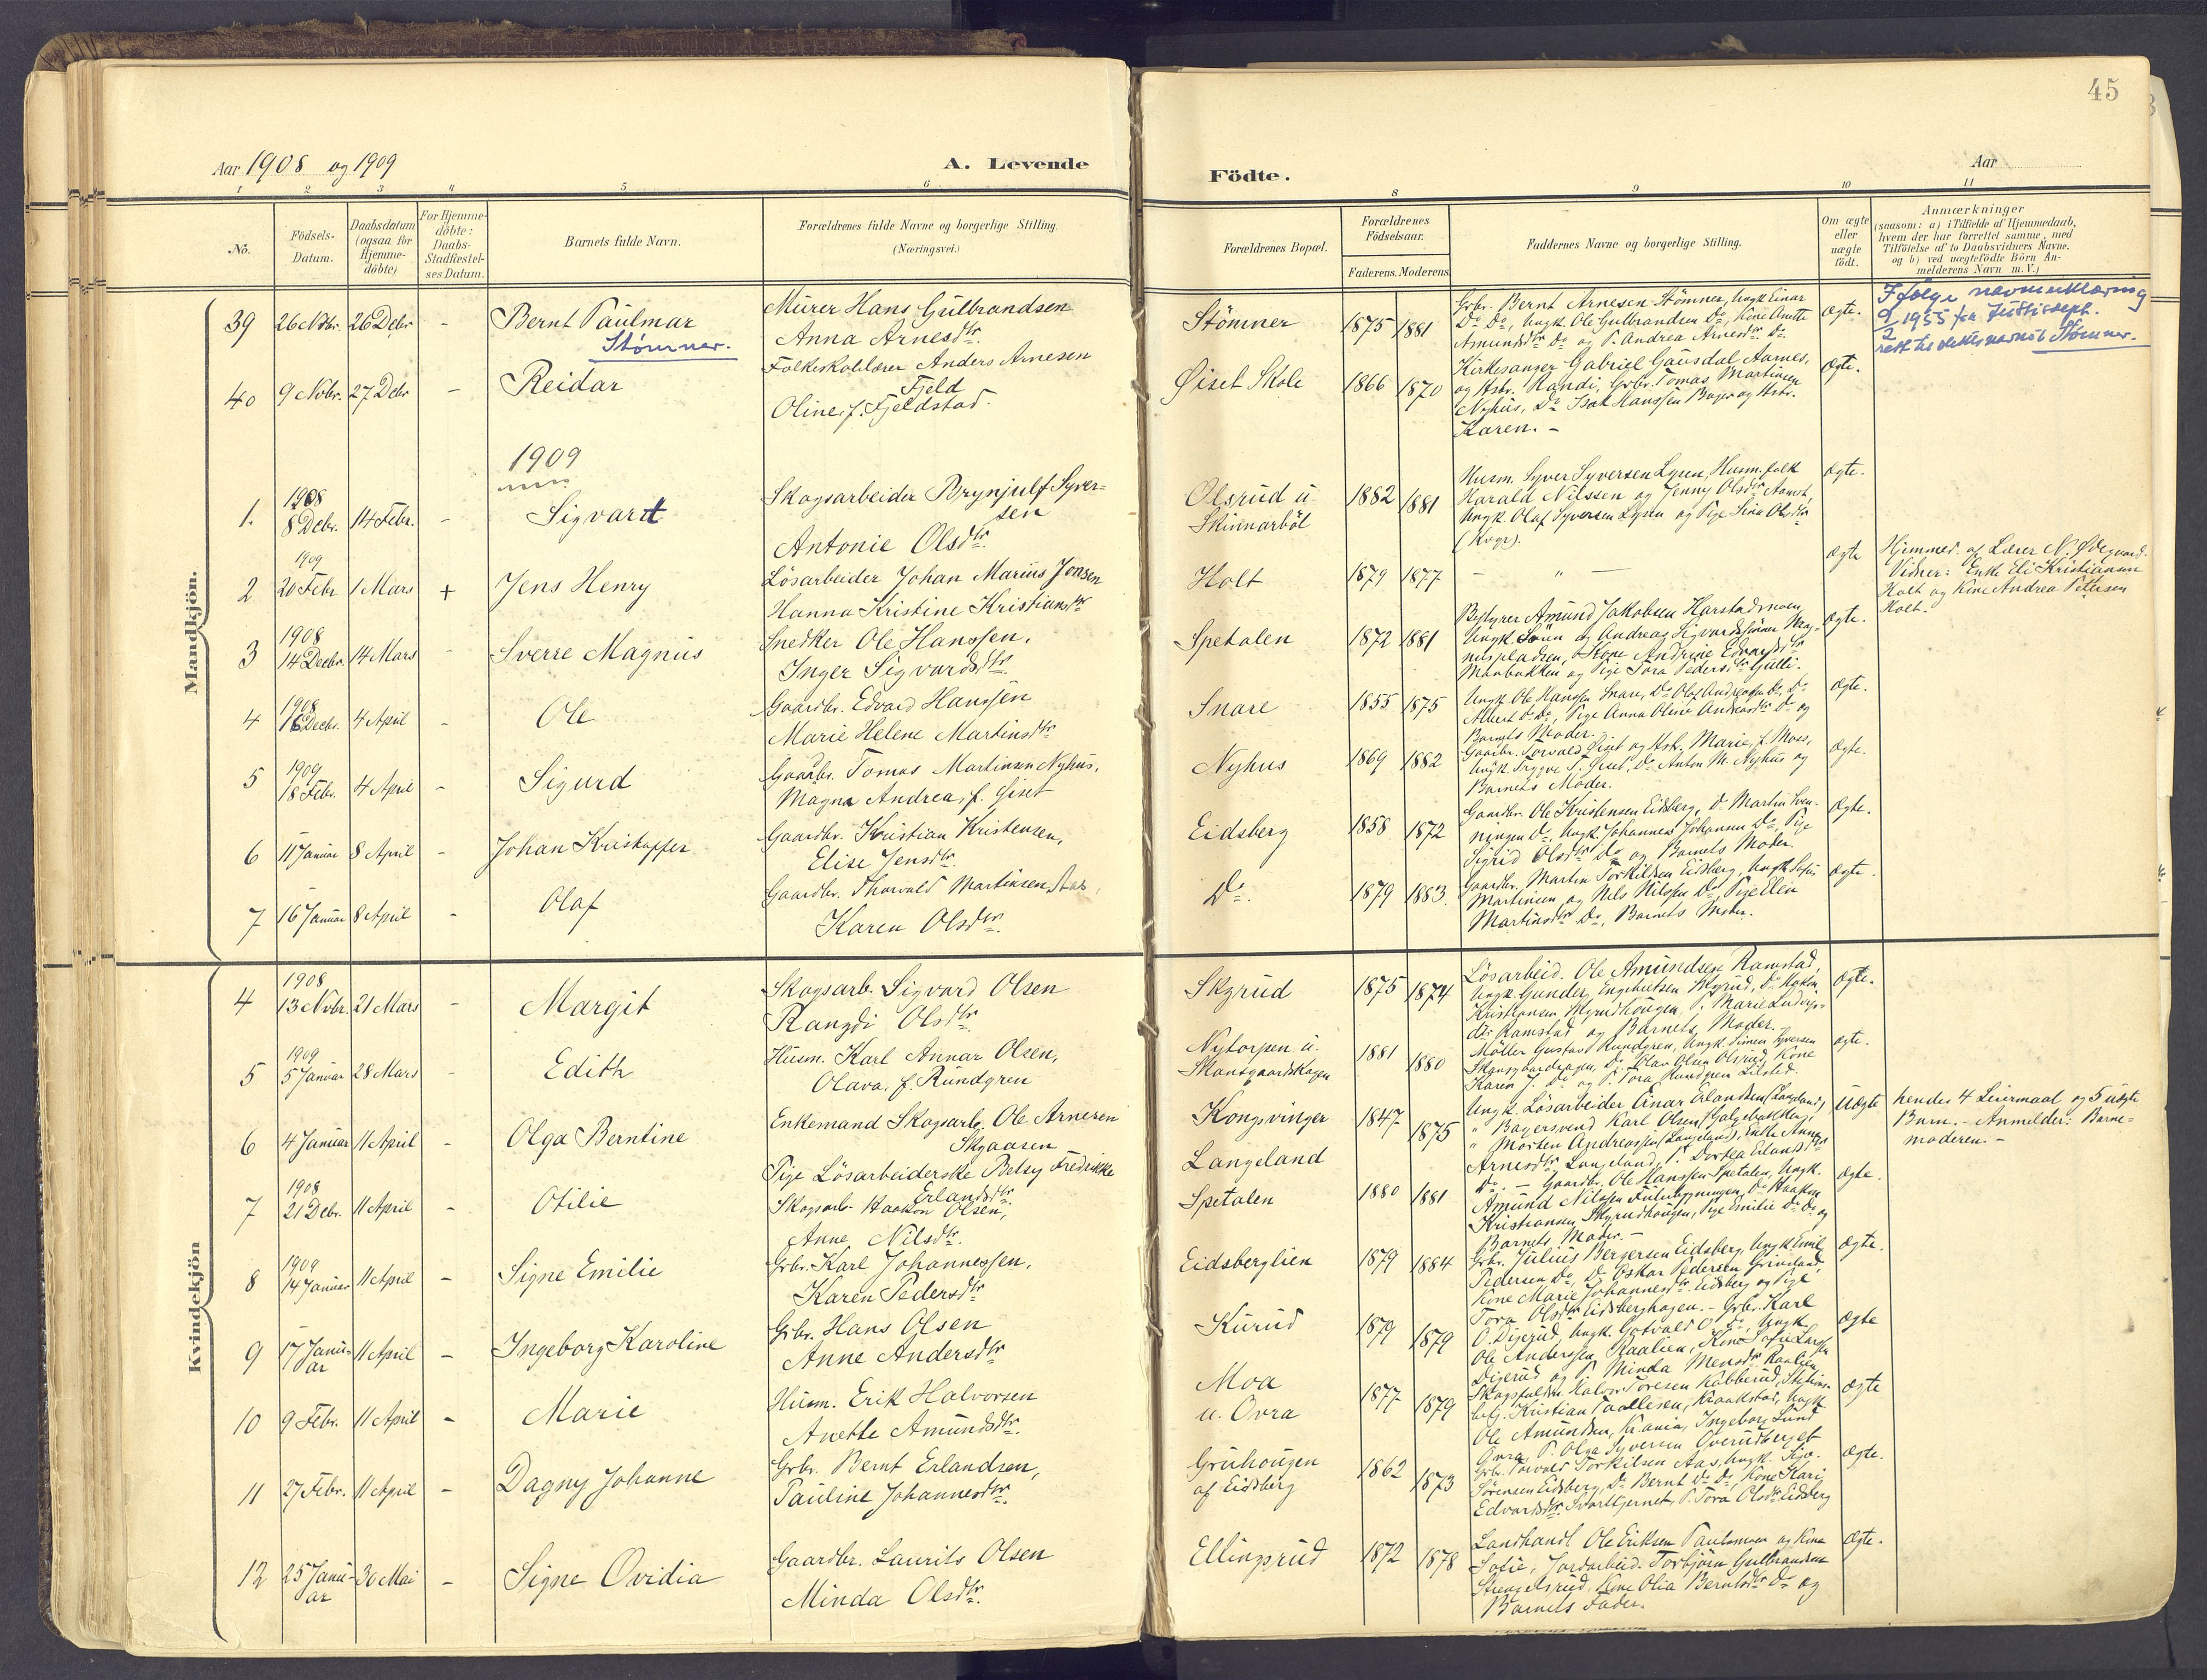 45
Aar 1908 og 1909
A. Levende
Födte.
Aar
1 2 3 4 5 6 8 9 10 11
No.
Födsels-
Datum.
Daabsdatum
(ogsaa for
Hjemme-
döbte)
For Hjemme-
döbte:
Daabs-
Stadfæstel-
ses Datum.
Barnets fulde Navn.
Forældrenes fulde Navne og borgerlige Stilling.
(Næringsvei.)
Forældrenes Bopæl.
Forældrenes
Födselsaar.
Faderens. Moderens
Faddernes Navne og borgerlige Stilling.
Om ægte
eller
uægte
födt.
Anmærkninger
(saasom: a) i Tilfælde af Hjemmedaab,
hvem der har forrettet samme, med
Tilföielse af to Daabsvidners Navne.
og b) ved uægtefödte Börn An-
melderens Navn m. V.)
Mandkjön.
39 26 Nvbr. 26 Debr -
Bernt Paulmar
Stømner.
Murer Hans Gulbrandsen
Anna Arnesdtr.
Stömner 1875 1881
Grbr. Bernt Arnesen Stömner, Ungk. Einar
Do Do, Ungk. Ole Gulbrandsen Do, Kone Anette
Amundsdtr Do og P. Andrea Arnesdtr Do
Ægte.
Ifølge navneerklæring
9/2 1955 fra Justisdept.
rett til slektsnavnet Stømner.
40 9 Nvbr. 27 Debr -
Reidar
Folkeskolelærer Anders Arnesen
Fjeld
Oline, f. Fjeldstad.
Øiset Skole 1866 1870
Kirkesanger Gabriel Gausdal Aarnes,
og Hstr. Randi, Grbr. Tomas Martinsen
Nyhus, Do Isak Hanssen Bager og Hstr.
Karen. -
Ægte.
1909
1. 1908
8 Debr. 14 Febr. -
Sigvart
Skogsarbeider Brynjulf Syver-
sen
Antonie Olsdtr.
Olsrud u.
Skinnarböl
1882 1881
Husm. Syver Syversen Lysen, Husm.folk
Harald Nilssen og Jenny Olsdtr Aamot,
Ungk. Olaf Syversen Lysen og Pige Lina Olsdtr
Ægte.
2 1909
20 Febr 1 Mars +
Jens Henry
Lösarbeider Johan Marius Jonsen
Hanna Kristine Kristiansdtr
Holt 1879 1877
- " -
Ægte
Hjemmed. af Lærer N. Ødegaard.
Vidner: Enke Eli Kristiansen
Holt og Kone Andrea Petersen
Holt.
3 1908
14 Decbr. 14 Mars -
Sverre Magnus
Snedker Ole Hanssen,
Inger Sigvardsdtr.
Spetalen 1872 1881
Bestyrer Amund Jakobsen Harstadmoen
Ungk. Søren og Andreas Sigvardssønner Mag-
nuspladsen, Kone Andrine Edvardsdtr
Manbakken og Pige Tora Pedersdtr Gulli.
Ægte.
4 1908
16 Decbr. 4 April -
Ole
Gaardbr. Edvard Hanssen
Marie Helene Martinsdtr
Snare 1855 1875
Ungk. Ole Hanssen Snare, Do Olaf Andreassen Do, Do
Albert Do Do, Pige Anna Oline Andreasdtr Do og
Barnets Moder.
Ægte.
5 1909
18 Febr. 4 April -
Sigurd
Gaardbr. Tomas Martinsen Nyhus,
Magna Andrea, f. Øiset
Nyhus 1869 1882
Gaardbr. Torvald Øiset og Hstr. Marie, f. Moes,
Ungk. Trygve T. Øiset, Do Anton M. Nyhus og
Barnets Moder.
Ægte.
6 11 Januar 8 April -
Johan Kristoffer
Gaardbr. Kristian Kristensen,
Elise Jensdtr.
Eidsberg 1858 1872
Gaardbr. Ole Kristensen Eidsberg, Do Martin Sven-
ningen Do, Ungk. Johannes Johansen Do, Pige
Sigrid Olsdtr Do og Barnets Moder.
Ægte.
7 16 Januar 8 April -
Olaf
Gaardbr. Thorvald Martinsen Aas,
Karen Olsdtr.
Do. 1879 1883.
Gaardbr. Martin Torkildsen Eidsberg, Ungk. Sofus
Martinsen og Nels Nilssen Do, Pige Elen
Martinsdtr Do, Barnets Moder.
Ægte.
Kvindekjön
4 1908
13 Nvbr. 21 Mars -
Margit
Skogsarb. Sigvard Olsen
Rangdi Olsdtr.
Skyrud 1875 1874
Lösarbeid. Ole Amundsen Ramstad,
Ungk. Gunder Engebretsen Skyrud, Do Hakon
Kristiansen Skyrudhaugen, P. Marie Ludvigs-
dtr Ramstad og Barnets Moder.
Ægte.
5 1909
5 Januar 28 Mars -
Edith
Husm. Karl Annar Olsen,
Olava, f. Rundgren
Nytorpen u.
Skansgaardskogen
1881 1880
Möller Gustav Rundgren, Ungk. Simen Syversen
Skansgaardskogen, Do Olav Olsen Olsrud, Kone
Karen J. Do og P. Tora Rundgren Lilsted.
Ægte.
6 4 Januar 11 April -
Olga Berntine
Enkemand Skogsarb. Ole Arnesen
Skyaasen
Pige Lösarbeiderske Betsy Fredrikke
Erlandsdtr
Kongsvinger 1847
Langeland 1875
Ungk. Lösarbeider Einar Erlandsen (Langeland),
" Bagersvend Karl Olsen (Galgebakken),
" Morten Andreassen (Langeland), Enke Anna
Arnesdtr Langeland, P. Dortea Erlandsdtr
Do. -
Uægte
hendes 4 Leiermaal og 5 uægte
Barn. - Anmelder: Barne-
moderen. -
7 1908
21 Debr. 11 April -
Otilie
Skogsarb. Haakon Olsen,
Anne Nilsdtr.
Spetalen 1880 1881
Gaardbr. Ole Hanssen Spetalen, Ungk.
Amund Nilssen Fulubygningen, Do Haakon
Kristiansen Skyrudhaugen, Pige Emilie Do Do og
Barnets Moder. -
Ægte.
8 1909
14 Januar 11 April -
Signe Emilie
Grbr. Karl Johannessen,
Karen Pedersdtr
Eidsberglien 1879 1884
Grbr. Julius Bergersen Eidsberg, Ungk. Emil
Pedersen Do, Do Oskar Pedersen Grinland,
Kone Marie Johannesdtr. Eidsberg og Pige
Tora Olsdtr Eidsberghagen. -
Ægte.
9 17 Janu-
ar 11 April -
Ingeborg Karoline
Grbr. Hans Olsen
Anne Andersdtr
Kurud 1879 1879
Grbr. Karl
O. Digerud, Ungk. Gotvald O. Do, Ungk.
Ole Anderssen Raalien, Kone Sofie Larssen
Digerud og P. Minda Mensdtr Raalien
Ægte
10 9 Febr. 11 April -
Marie
Husm. Erik Halvorsen
Anette Amundsdtr.
Moa
u. Ovra
1877 1879
Skogsfuldm. Halvor Toresen Kabberud, Stations-
betj. Kristian Paallesen, Kraakstad, Ungk.
Ole Amundsen, Kr.ania, Ingeborg Lund
Ovra, P. Olga Syversen Overudberget
Ægte
11 27 Febr. 11 April -
Dagny Johanne
Grbr. Bernt Erlandsen,
Pauline Johannesdtr.
Gruhougen
af Eidsberg
1862 1873
Grbr. Torvald Torkilsen Aas, Ungk.
Sörensen Eidsberg, Do Bernt Do Do, Kone Kari
Edvardsdtr. Svarttjernet, P. Tora Olsdtr Eidsberg
Ægte.
12 25 Janu-
ar 30 Mai -
Signe Ovidia
Gaardbr. Laurits Olsen
Minda Olsdtr.
Ellingsrud 1872 1878
Landhandl. Ole Eriksen Paulsmoen og Kone
Sofie, Jordarbeid. Torbjörn Gulbrandsen
Strengelsrud, Kone Olia Berntsdtr Do og
Barnets Fader.
Ægte.